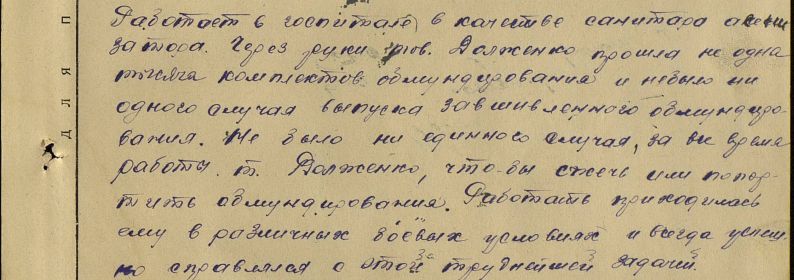 Работает в госпитале, в качестве санитара
затора. Через руки тов. Долженко прошла не одна
тысяча комплектов обмундирования и небыло ни
одного случая выпуска завшивленного обмундиро-
вания. Не было ни единного случая, за все время
работы. т. Долженко, что-бы сжечь или попор-
тить обмундирования. Работать приходилась
ему в различных боевых условиях и всегда успеш-
но справлялся с этой труднейшей задачей.
Д Л Я П